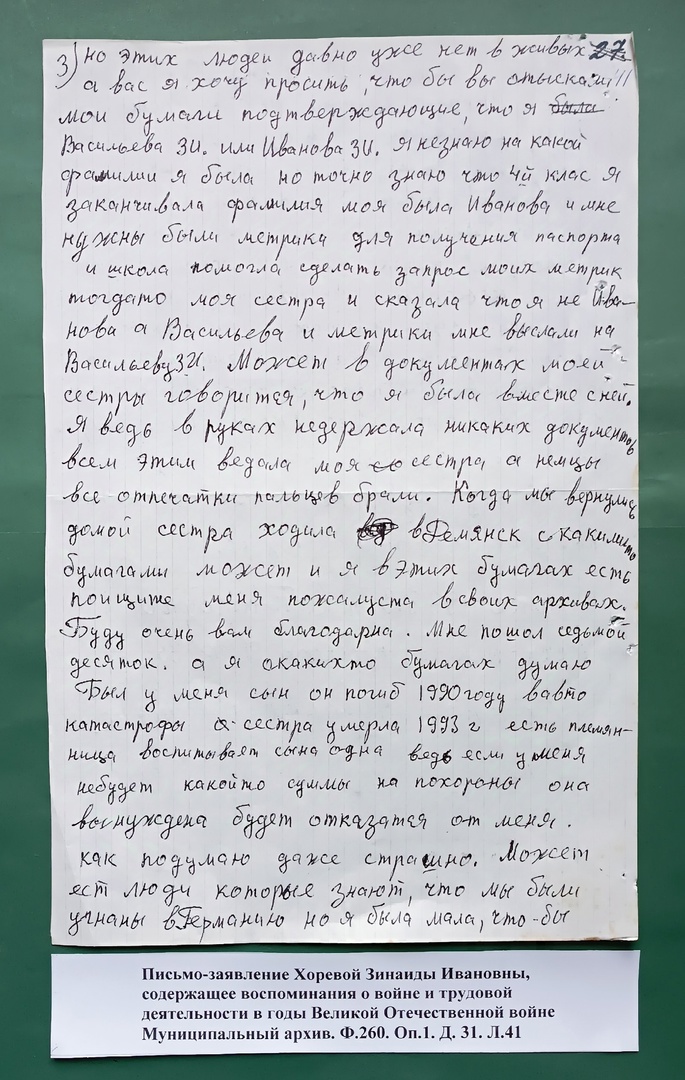 3) но этих людей давно уже нет в живых 27
а вас я хочу просить, что бы вы отыскали!!!
мои бумаги подтверждающие, что я была
Васильева З.И. или Иванова З.И. я незнаю на какой
фамилии я была но точно знаю что 4й клас я
заканчивала фамилия моя была Иванова и мне
нужны были метрики для получения паспорта
и школа помогла сделать запрос моих метрик
тогдато моя сестра и сказала что я не Ива-
нова а Васильева и метрики мне выслали на
Васильеву З.И. Может в документах моей
сестры говорится, что я была вместе сней.
Я ведь в руках недержала никаких документов
всем этим ведала моя сестра а немцы
все отпечатки пальцев брали. Когда мы вернулись
домой сестра ходила в Демянск с какимито
бумагами может и я в этих бумагах есть
поищите меня пожалуста в своих архивах.
Буду очень вам благодарна. Мне пошол седьмой
десяток. а я окакихто бумагах думаю
Был у меня сын он погиб 1990 году в авто
катастрофы а сестра умерла 1993 г есть племян-
ница воспитывает сына одна ведь если у меня
небудет какойто суммы на похороны она
вынуждена будет отказатся от меня.
как подумаю даже страшно. Может
ест люди которые знают, что мы были
угнаны в Германию но я была мала, что-бы
Письмо-заявление Хоревой Зинаиды Ивановны,
содержащее воспоминания о войне и трудовой
деятельности в годы Великой Отечественной войне
Муниципальный архив. Ф.260. Оп.1. Д. 31. Л.41